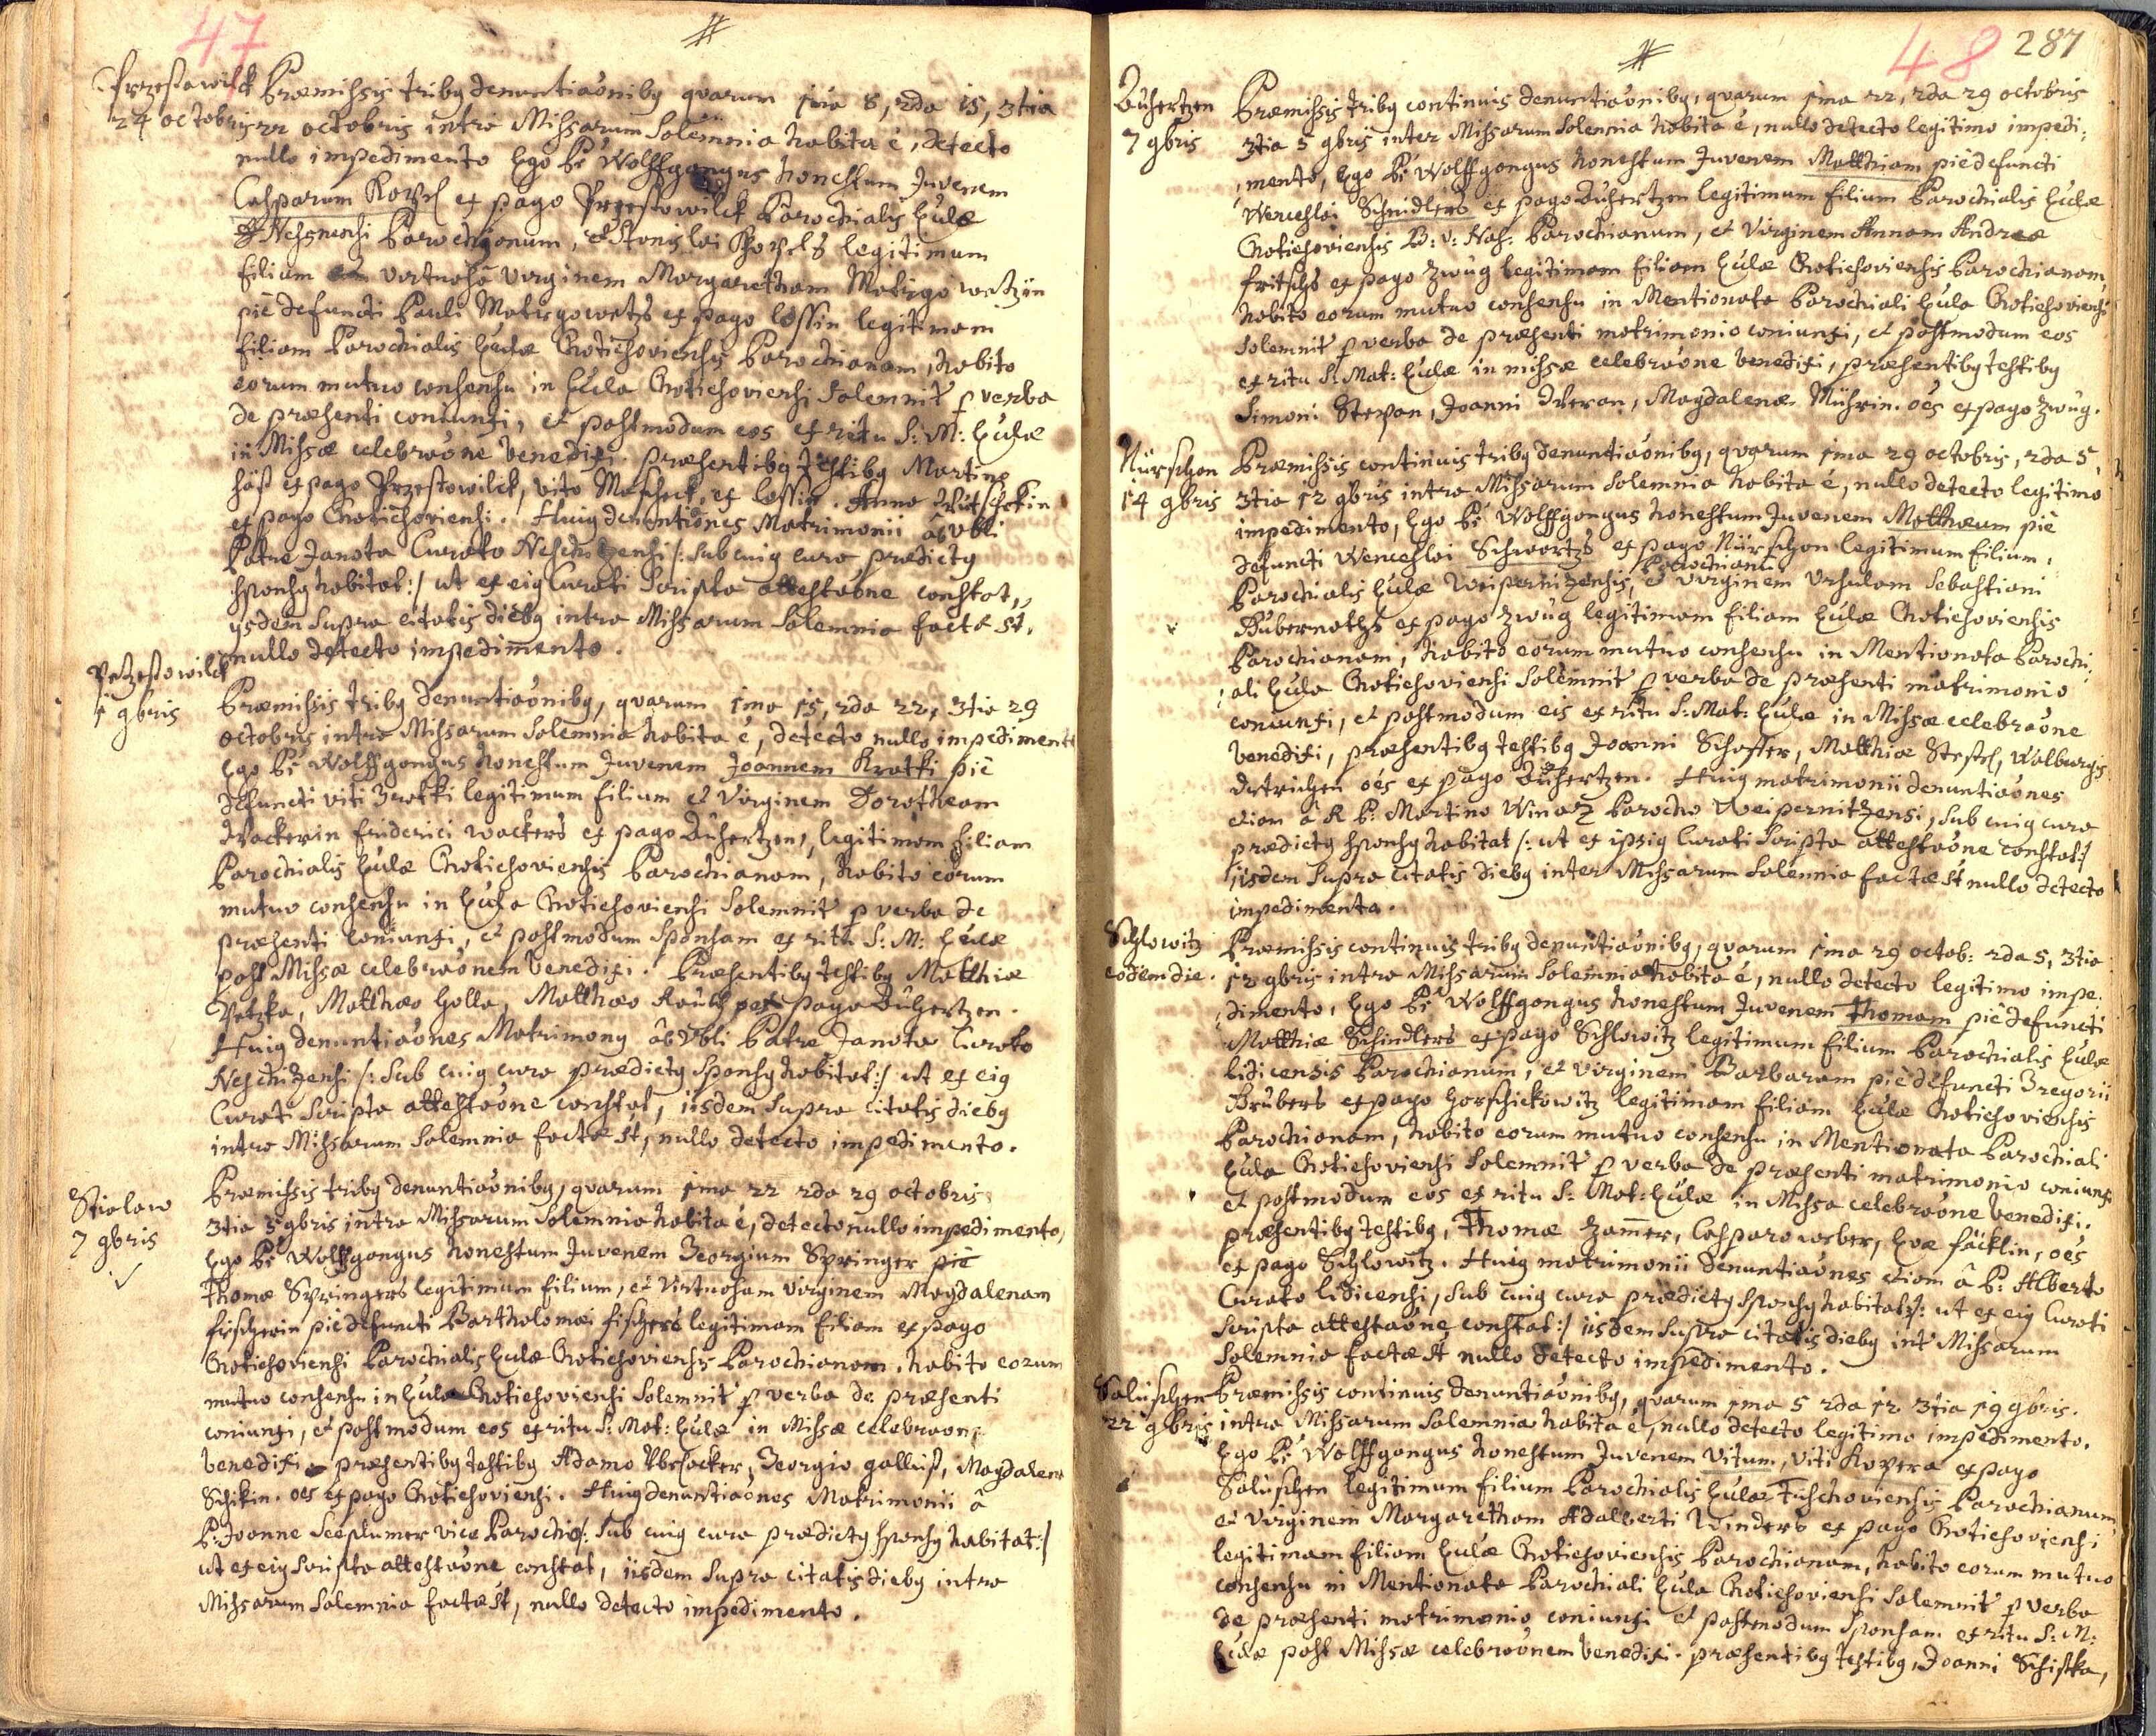 47
#
Przestowilck Præmissis tribq denuntiaõnibq quarum 1ma 8, 2da 15, 3tia
24 octobris 22 octobris intra Missarum Solemnia habita ẽ, detecto
nullo impedimento Ego Pr Wolffgangus honestum Juvenem
Casparum et pago Przestowilck Parochialis Eculæ
Parochianum, Stanislai legitimum
filium virtuosã virginem Margaretham
piè defuncti Pauli ex pago lossin legitimam
filiam Parochialis Eculæ Chotieschoviensis Parochianam, habito
eorum mutuo consensu in Ecula Chotieschoviensi Solemnit p verba
de præsenti coniunxi, et postmodum eos ex ritu S: M: Eculæ
in Missæ celebraõne benedixi. præsentibq testibq Martino
ex pago Przestowilck, vito Mascheck, ex lossin. Anna
ex pago Chotieschoviensi. Huiq denuntiãones Matrimonii
Patre Janota Curato Neschitzensi /: sub cuiq cura prædictq
sponsq habitat :/ ut ex eiq Curati Scripta attestaõne constat,
ysdem supra citatis diebq intra Missarum Solemnia factæ st,
nullo detecto impedimento.
Przestowilck
1 9bris Præmissis tribq denuntiaõnibq, quarum 1ma 15, 2da 22, 3tia 29
octobris intra Missarum Solemnia habita ẽ, detecto nullo impedimento
Ego Pr Wolffgangus honestum Juvenem Joannem Kratki piè
defuncti viti legitimum filium et Virginem Dorotheam
Wackerin Friderici Wackers ex pago Auhertzen, legitimam filiam
Parochialis Eculæ Chotieschoviensis Parochianam, habito eorum
mutuo consensu in Ecula Chotieschoviensi Solemnit p verba de
præsenti coniunxi, et postmodum Sponsam ex ritu S: M: Eculæ
post Missæ celebraõnem benedixi. Præsentibq testibq Matthia
Petzka, Matthæo Holla, Matthæo ex pago Auhertzen.
Huiq denuntiaõnes Matrimony Patre Janota Curato
Neschitzensi /: sub cuiq cura prædictq Sponsq habitat :/ ut ex eiq
Curati Scripta attestaõne constat, iisdem supra citatis diebq
intra Missarum Solemnia factæ st, nullo detecto impedimento.
Stialaw
7 9bris
Præmissis tribq denuntiaõnibq, quarum 1ma 22 2da 29 octobris
3tia 5 9bris intra Missarum Solemnia habita ẽ, detecto nullo impedimento,
Ego Pr Wolffgangus honestum Juvenem Georgium Springer piè
Thomæ Springers legitimum filium, et virtuosam virginem Magdalenam
fischerin piè defuncti Bartholomæi fischers legitimam filiam ex pago
Chotieschoviensi Parochialis Eculæ Chotieschoviensis Parochianam. habito eorum
mutuo consensu in Ecula Chotieschoviensi Solemnit p verba de præsenti
coniunxi, et postmodum eos ex ritu S: Mat: Eculæ in Missæ celebraõne
benedixi præsentibq testibq Adamo, Georgio galluß, Magdalena
Schikin. oẽs ex pago Chotieschoviensi. Huiq denuntiaõnes Matrimonii â
P: Joanne vice Parocho /: sub cuiq cura prædictq sponsq habitat :/
ut ex eiq Scripta attestaõne constat, iisdem supra citatis diebq intra
Missarum Solemnia factæ st, nullo detecto impedimento.
48 287
#
Auhertzen
7 9bris
Præmissis tribq continuis denuntiaõnibq, quarum 1ma 22, 2da 29 octobris
3tia 5 9bris inter Missarum Solennia habita ẽ, nullo detecto legitimo impedi:
mento, Ego Pr Wolffgangus honestum Juvenem Matthiam piè defuncti
Wenceslai Schnidlers ex pago Auhertzen legitimum filium Parochialis Eculæ
Chotieschoviensis B: V: Nas: Parochianum, et Virginem Annam Andreæ
fritschs ex pago Zwug legitimam filiam Eculæ Chotieschoviensis Parochianam,
habito eorum mutuo consensu in Mentionata Parochiali Ecula Chotieschoviensi
Solemnit p verba de præsenti matrimonio coniunxi, et postmodum eos
ex ritu S: Mat: Eculæ in missæ celebraõne benedixi, præsentibq testibq
Simoni Stepan, Joanni Dveran, Magdalenæ Mührin. oẽs ex pago Zwug.
Nürschan
14 9bris
Præmissis continuis tribq denuntiaõnibq, quarum 1ma 29 octobris, 2da 5,
3tia 12 9bris intra Missarum Solemnia habita ẽ, nullo detecto legitimo
impedimento, Ego Pr Wolffgangus honestum Juvenem Matthæum piè
defuncti Wenceslai Schwartzs ex pago Nürschan legitimum filium,
Parochialis Eculæ Weipernitzensis, Parochianũ et virginem Ursulam Sebastiani
Bubernatzs ex pago Zwug legitimam filiam Eculæ Chotieschoviensis
Parochianam, habito eorum mutuo consensu in Mentionata Parochi:
ali Ecula Chotieschoviensi Solemnit p verba de præsenti matrimonio
coniunxi, et postmodum eis ex ritu S: Mat: Eculæ in Missæ celebraõne
benedixi, præsentibq testibq Joanni Schaffer, Matthiæ, Walburgis
oẽs ex pago Auhertzen. Huiq matrimonii denuntiaõnes
etiam â R P: Martino Parocho Weipernitzensi, sub cuiq cura
prædictq sponsq habitat /: ut ex ipsiq Curati Scripta attestaõne constat :/
iisdem supra citatis diebq inter Missarum Solennia factæ st nullo detecto
impedimento.
Schlowitz
eodem die.
Præmissis continuis tribq denuntiaõnibq, quarum 1ma 29 octob: 2da 5, 3tia
12 9bris intra Missarum Solemnia habita ẽ, nullo detecto legitimo impe:
dimento, Ego Pr Wolffgangus honestum Juvenem Thomam piè defuncti
Matthiæ Schindlers ex pago Schlowitz legitimum filium Parochialis Eculæ
Lidicensis Parochianum, et virginem Barbaram piè defuncti Gregorii
Brubers ex pago Horschickowitz legitimam filiam Eculæ Chotieschoviensis
Parochianam, habito eorum mutuo consensu in Mentionata Parochiali
Ecula Chotieschoviensi Solemnit p verba de præsenti matrimonio coniunxi
et postmodum eos ex ritu S: Mat: Eculæ in Missa celebraõne benedixi.
præsentibq testibq, Thomæ Zam̃er, Casparo weber, Evæ fäcklin, oẽs
ex pago Schlowitz. Huiq matrimonii denuntiaõnes etiam â P: Alberto
Curato lidicensi, sub cuiq cura prædictq sponsq habitat /: ut ex eiq Curati
Scripta attestaõne constat :/ iisdem supra citatis diebq int Missarum
Solemnia factæ st nullo detecto impedimento.
Saluschen
22 9bris
Præmissis continuis denuntiaõnibq, quarum 1ma 5 2da 12 3tia 19 9bris.
intra Missarum Solemnia habita ẽ, nullo detecto legitimo impedimento.
Ego Pr Wolffgangus honestum Juvenem Vitum, Viti Kopera ex pago
Saluschen legitimum filium Parochialis Eculæ Tuschoviensis Parochianum,
et virginem Margaretham Adalberti Winders ex pago Chotieschoviensi
legitimam filiam Eculæ Chotieschoviensis Parochianam, habito eorum mutuo
consensu in Mentionata Parochiali Ecula Chotieschoviensi Solemnit p verba
de præsenti matrimonio coniunxi et postmodum sponsam ex ritu S: M:
Eculæ post Missæ celebraõnem benedixi. præsentibq testibq, Joanni Schistka,